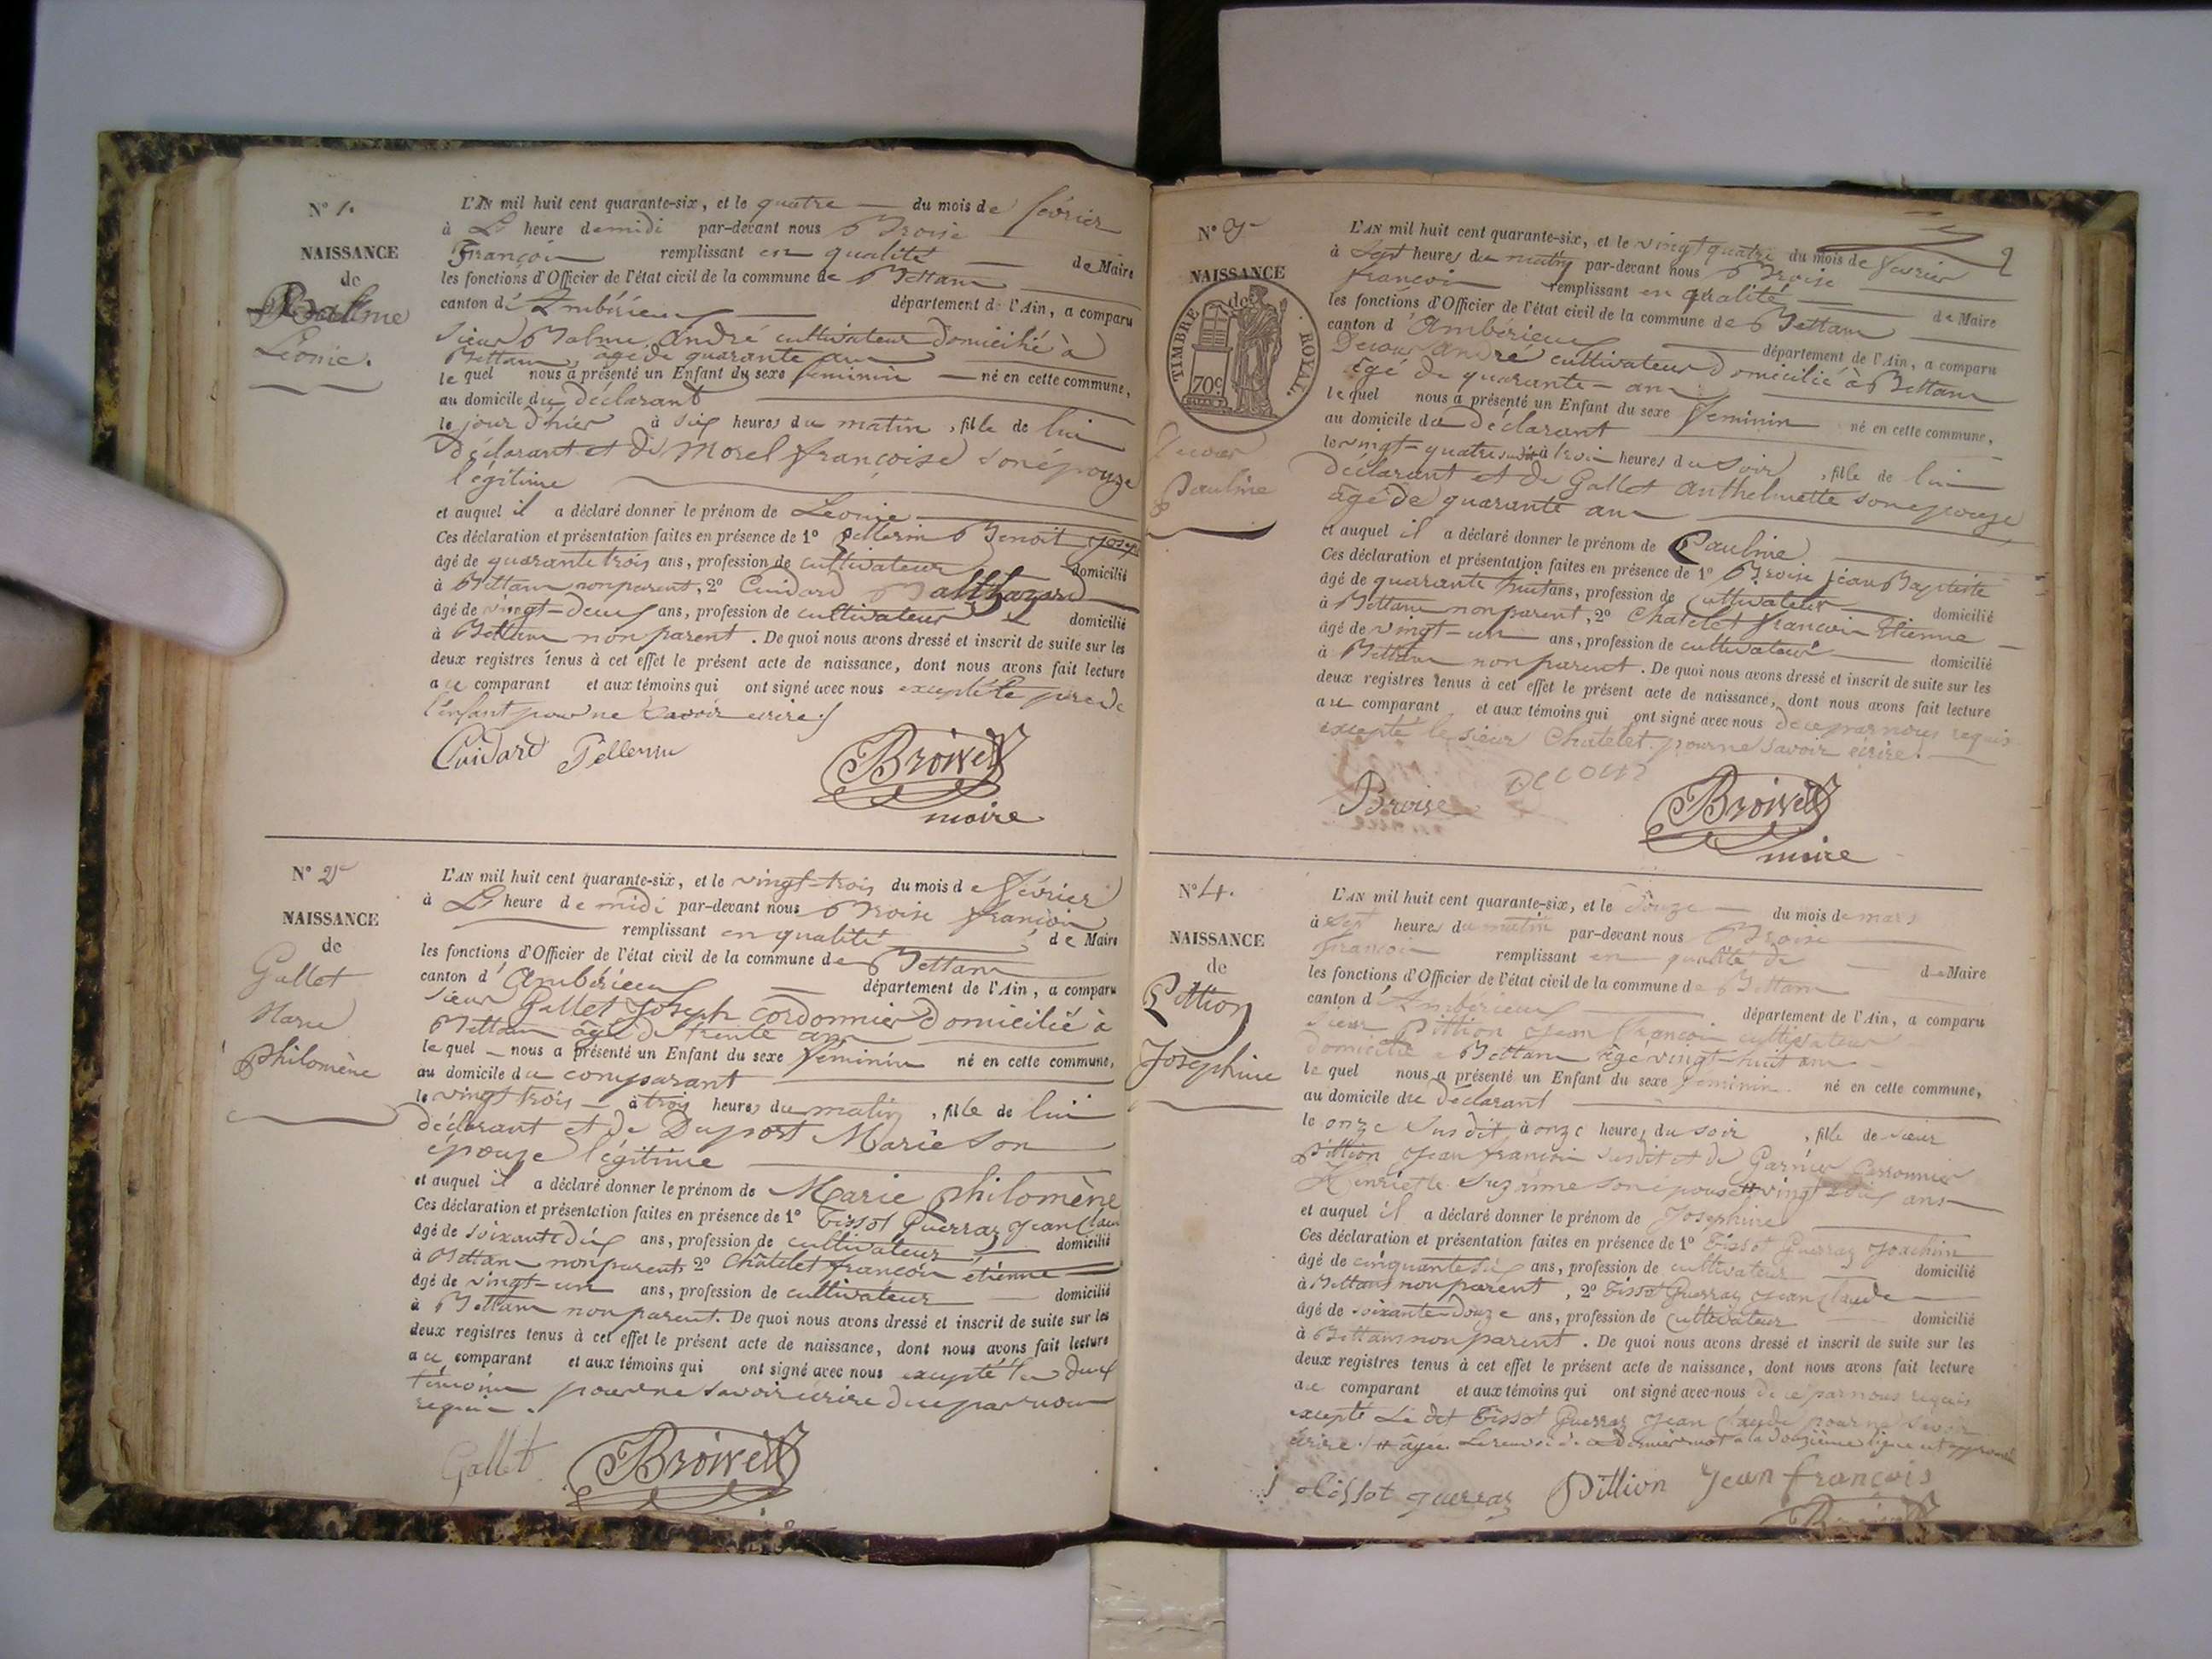 N° 1.
NAISSANCE
de
Balme
Léonie.
L'AN mil huit cent quarante-six, et le quatre du mois de février
à L' heure de midi par-devant nous Broise
François remplissant en qualité de Maire
les fonctions d'Officier de l'état civil de la commune de Bettans
canton d'Ambérieux département de l'Ain, a comparu
Sieur Balme André cultivateur domicilié à
Bettans, âgé de quarante ans
lequel nous a présenté un Enfant du sexe féminin né en cette commune,
au domicile du déclarant
le jour d'hier à six heures du matin, fille de lui
déclarant et de Morel françoise son épouze
légitime
et auquel il a déclaré donner le prénom de Léonie
Ces déclaration et présentation faites en présence de 1° Pellerin Benoit
âgé de quarante trois ans, profession de cultivateur domicilié
à Bettans non parent, 2° Cuidard Balthazard
âgé de vingt-deux ans, profession de cultivateur domicilié
à Bettans non parent. De quoi nous avons dressé et inscrit de suite sur les
deux registres tenus à cet effet le présent acte de naissance, dont nous avons fait lecture
au comparant et aux témoins qui ont signé avec nous excepté le père de
l'enfant pour ne savoir écrire.
Cuidard Pellerin
Broise
maire
N° 2
NAISSANCE
de
Gallet
Marie
philomène
L'AN mil huit cent quarante-six, et le vingt-trois du mois de février
à L' heure de midi par-devant nous Broise françois
remplissant en qualité de Maire
les fonctions d'Officier de l'état civil de la commune de Bettans
canton d'Ambérieux département de l'Ain, a comparu
Sieur Gallet Joseph cordonnier domicilié à
Bettans âgé de trente ans
lequel nous a présenté un Enfant du sexe féminin né en cette commune,
au domicile du comparant
le vingt trois à trois heures du matin, fille de lui
déclarant et de Duport Marie son
épouze légitime
et auquel il a déclaré donner le prénom de Marie philomène
Ces déclaration et présentation faites en présence de 1° Tissot Guerraz Jean Claude
âgé de soixante dix ans, profession de cultivateur domicilié
à Bettans non parent, 2° Châtelet françois etienne
âgé de vingt-un ans, profession de cultivateur domicilié
à Bettans non parent. De quoi nous avons dressé et inscrit de suite sur les
deux registres tenus à cet effet le présent acte de naissance, dont nous avons fait lecture
au comparant et aux témoins qui ont signé avec nous excepté les deux
témoins pour ne savoir écrire de ce par nous
requis.
Gallet Broise
2
N° 3
NAISSANCE
de
TIMBRE ROYAL
70c
Decour
Pauline
L'AN mil huit cent quarante-six, et le vingt quatre du mois de février
à sept heures du matin par-devant nous Broise
françois remplissant en qualité de Maire
les fonctions d'Officier de l'état civil de la commune de Bettans
canton d'Ambérieux département de l'Ain, a comparu
Decour André cultivateur domicilié à Bettans
âgé de quarante ans
lequel nous a présenté un Enfant du sexe féminin né en cette commune,
au domicile du déclarant
le vingt-quatre à trois heures du soir, fille de lui
déclarant et de Gallet Anthelmette son epouze
âgé de quarante ans
et auquel il a déclaré donner le prénom de Pauline
Ces déclaration et présentation faites en présence de 1° Broise jean Baptiste
âgé de quarante huit ans, profession de cultivateur domicilié
à Bettans non parent, 2° Chatelet françois Etienne
âgé de vingt-un ans, profession de cultivateur domicilié
à Bettans non parent. De quoi nous avons dressé et inscrit de suite sur les
deux registres tenus à cet effet le présent acte de naissance, dont nous avons fait lecture
au comparant et aux témoins qui ont signé avec nous de ce par nous requis
excepté le sieur Chatelet pour ne savoir écrire.
Broise Decour Broise
maire
N° 4.
NAISSANCE
de
Pittion
Joséphine
L'AN mil huit cent quarante-six, et le douze du mois de mars
à sept heures du matin par-devant nous Broise
françois remplissant en qualité de de Maire
les fonctions d'Officier de l'état civil de la commune de Bettans
canton d'Ambérieux département de l'Ain, a comparu
sieur Pittion Jean françois cultivateur
domicilié a Bettans âgé vingt-huit ans
lequel nous a présenté un Enfant du sexe féminin né en cette commune,
au domicile du déclarant
le onze susdit à onze heures du soir, fille de sieur
Pittion Jean françois susdit et de Garnier
Henriette Suzanne son épouse # vingt ans
et auquel il a déclaré donner le prénom de Josephine
Ces déclaration et présentation faites en présence de 1° Tissot Guerraz Joachim
âgé de cinquante six ans, profession de cultivateur domicilié
à Bettans non parent, 2° Tissot Guerraz Jean Claude
âgé de soixante douze ans, profession de cultivateur domicilié
à Bettans non parent. De quoi nous avons dressé et inscrit de suite sur les
deux registres tenus à cet effet le présent acte de naissance, dont nous avons fait lecture
au comparant et aux témoins qui ont signé avec nous de ce par nous requis
excepté Le dit Tissot Guerraz Jean Claude pour ne savoir
écrire. # âgée. Le renvoi dernier mot a la douzième ligne est approuvé
tissot guerraz Pittion Jean françois